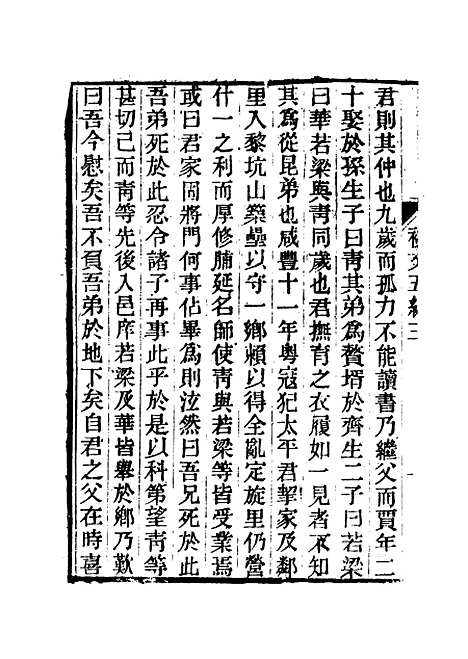 君則其仲也九歲而孤力不能讀書乃繼父而賈年二
十娶於孫生子曰靑其弟爲贅壻於齊生二子曰若梁
曰華若梁與靑同歲也君撫育之衣履如一見者不知
其爲從昆弟也咸豐十一年粵寇犯太平君挈家及鄰
里入黎坑山築壘以守一鄉賴以得全亂定旋里仍營
什一之利而厚修脯延名師使靑與若梁等皆受業焉
或曰君家固將門何事佔畢爲則泫然曰吾兄死於此
吾弟死於此忍令諸子再事此乎於是以科第望靑等
甚切己而靑等先後入邑庠若梁及華皆舉於鄉乃歎
曰吾今慰矣吾不負吾弟於地下矣自君之父在時喜